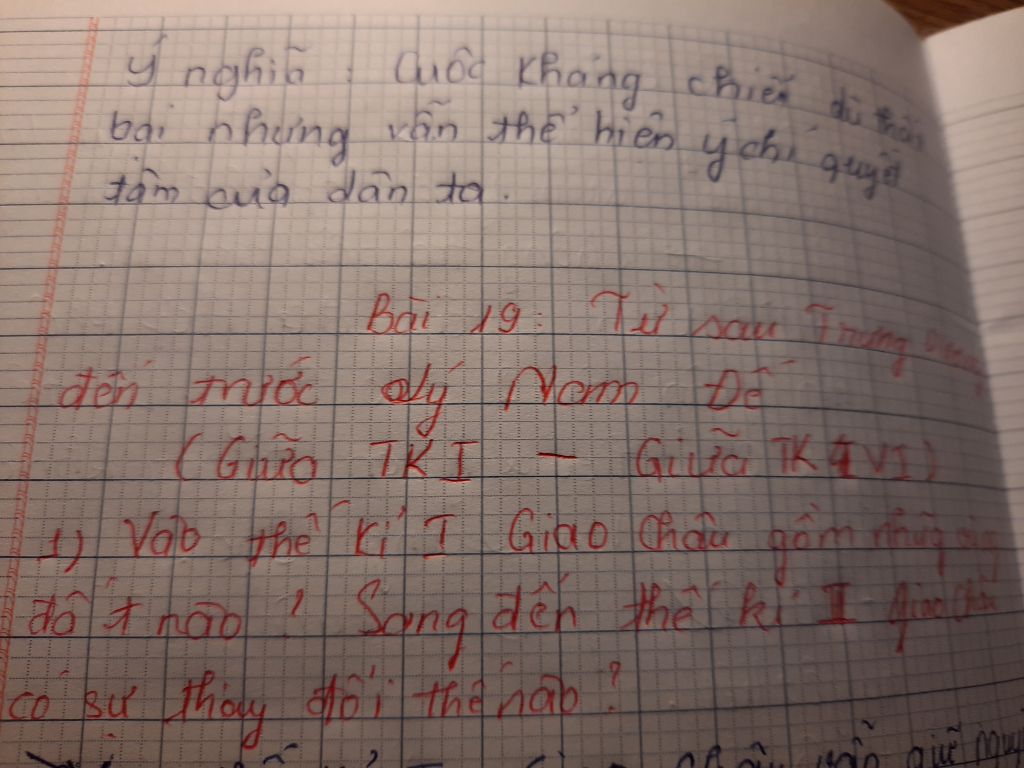 Ý nghĩa : Cuộc kháng chiến dù thất
bại nhưng vẫn thể hiện ý chí quyết
tâm của dân ta.
Bài 19: Từ sau Trưng Vương
đến trước Lý Nam Đế
(Giữa TK I - Giữa TK VI)
1) Vào thế kỉ I Giao Châu gồm những vùng
đất nào? Sang đến thế kỉ I Giao Châu
có sự thay đổi thế nào?
vẫn giữ nguyên